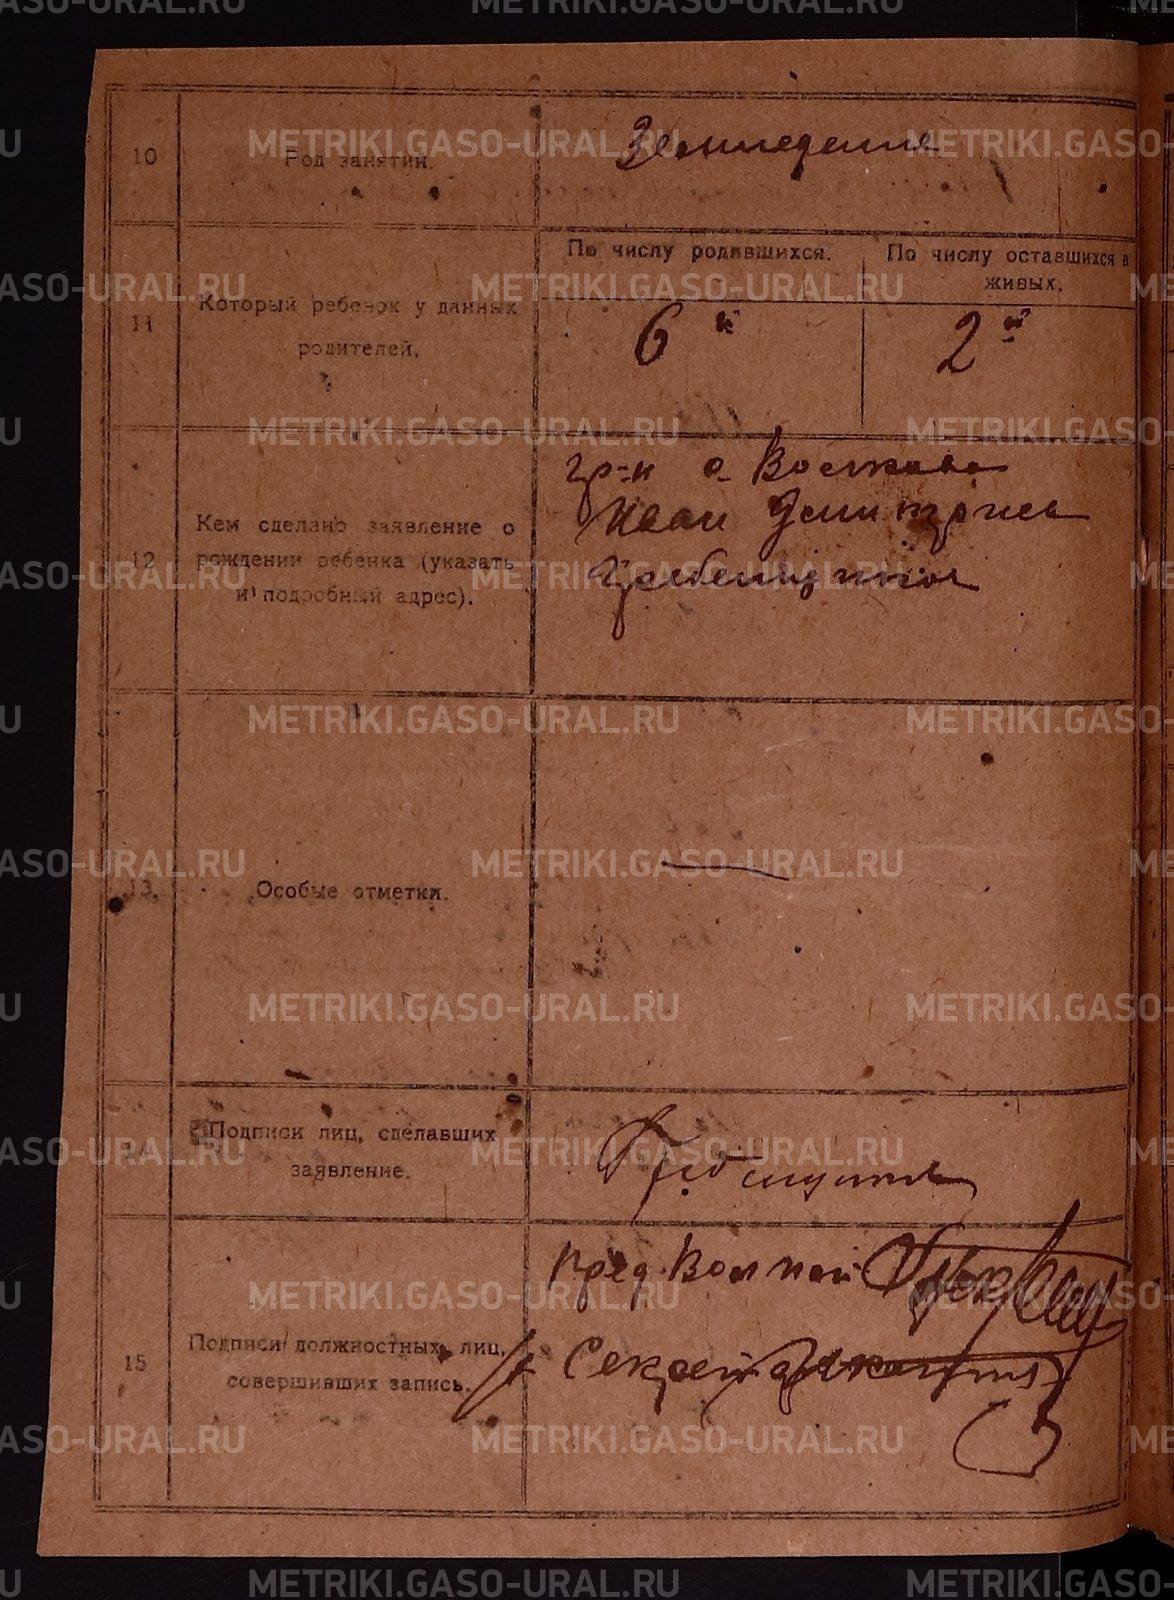 METRIKI.GASO-URAL.RU
10
Род занятий.
Земледелие
11
Который ребенок у данных
родителей.
По числу родившихся.
6й
По числу оставшихся в
живых.
2й
12
Кем сделано заявление о
рождении ребенка (указать
и подробный адрес).
гр-н с
Иван Дмитриев
Гребенщиков
13.
Особые отметки.
Подписи лиц, сделавших
заявление.
15
Подписи должностных лиц,
совершивших запись.
Пред.